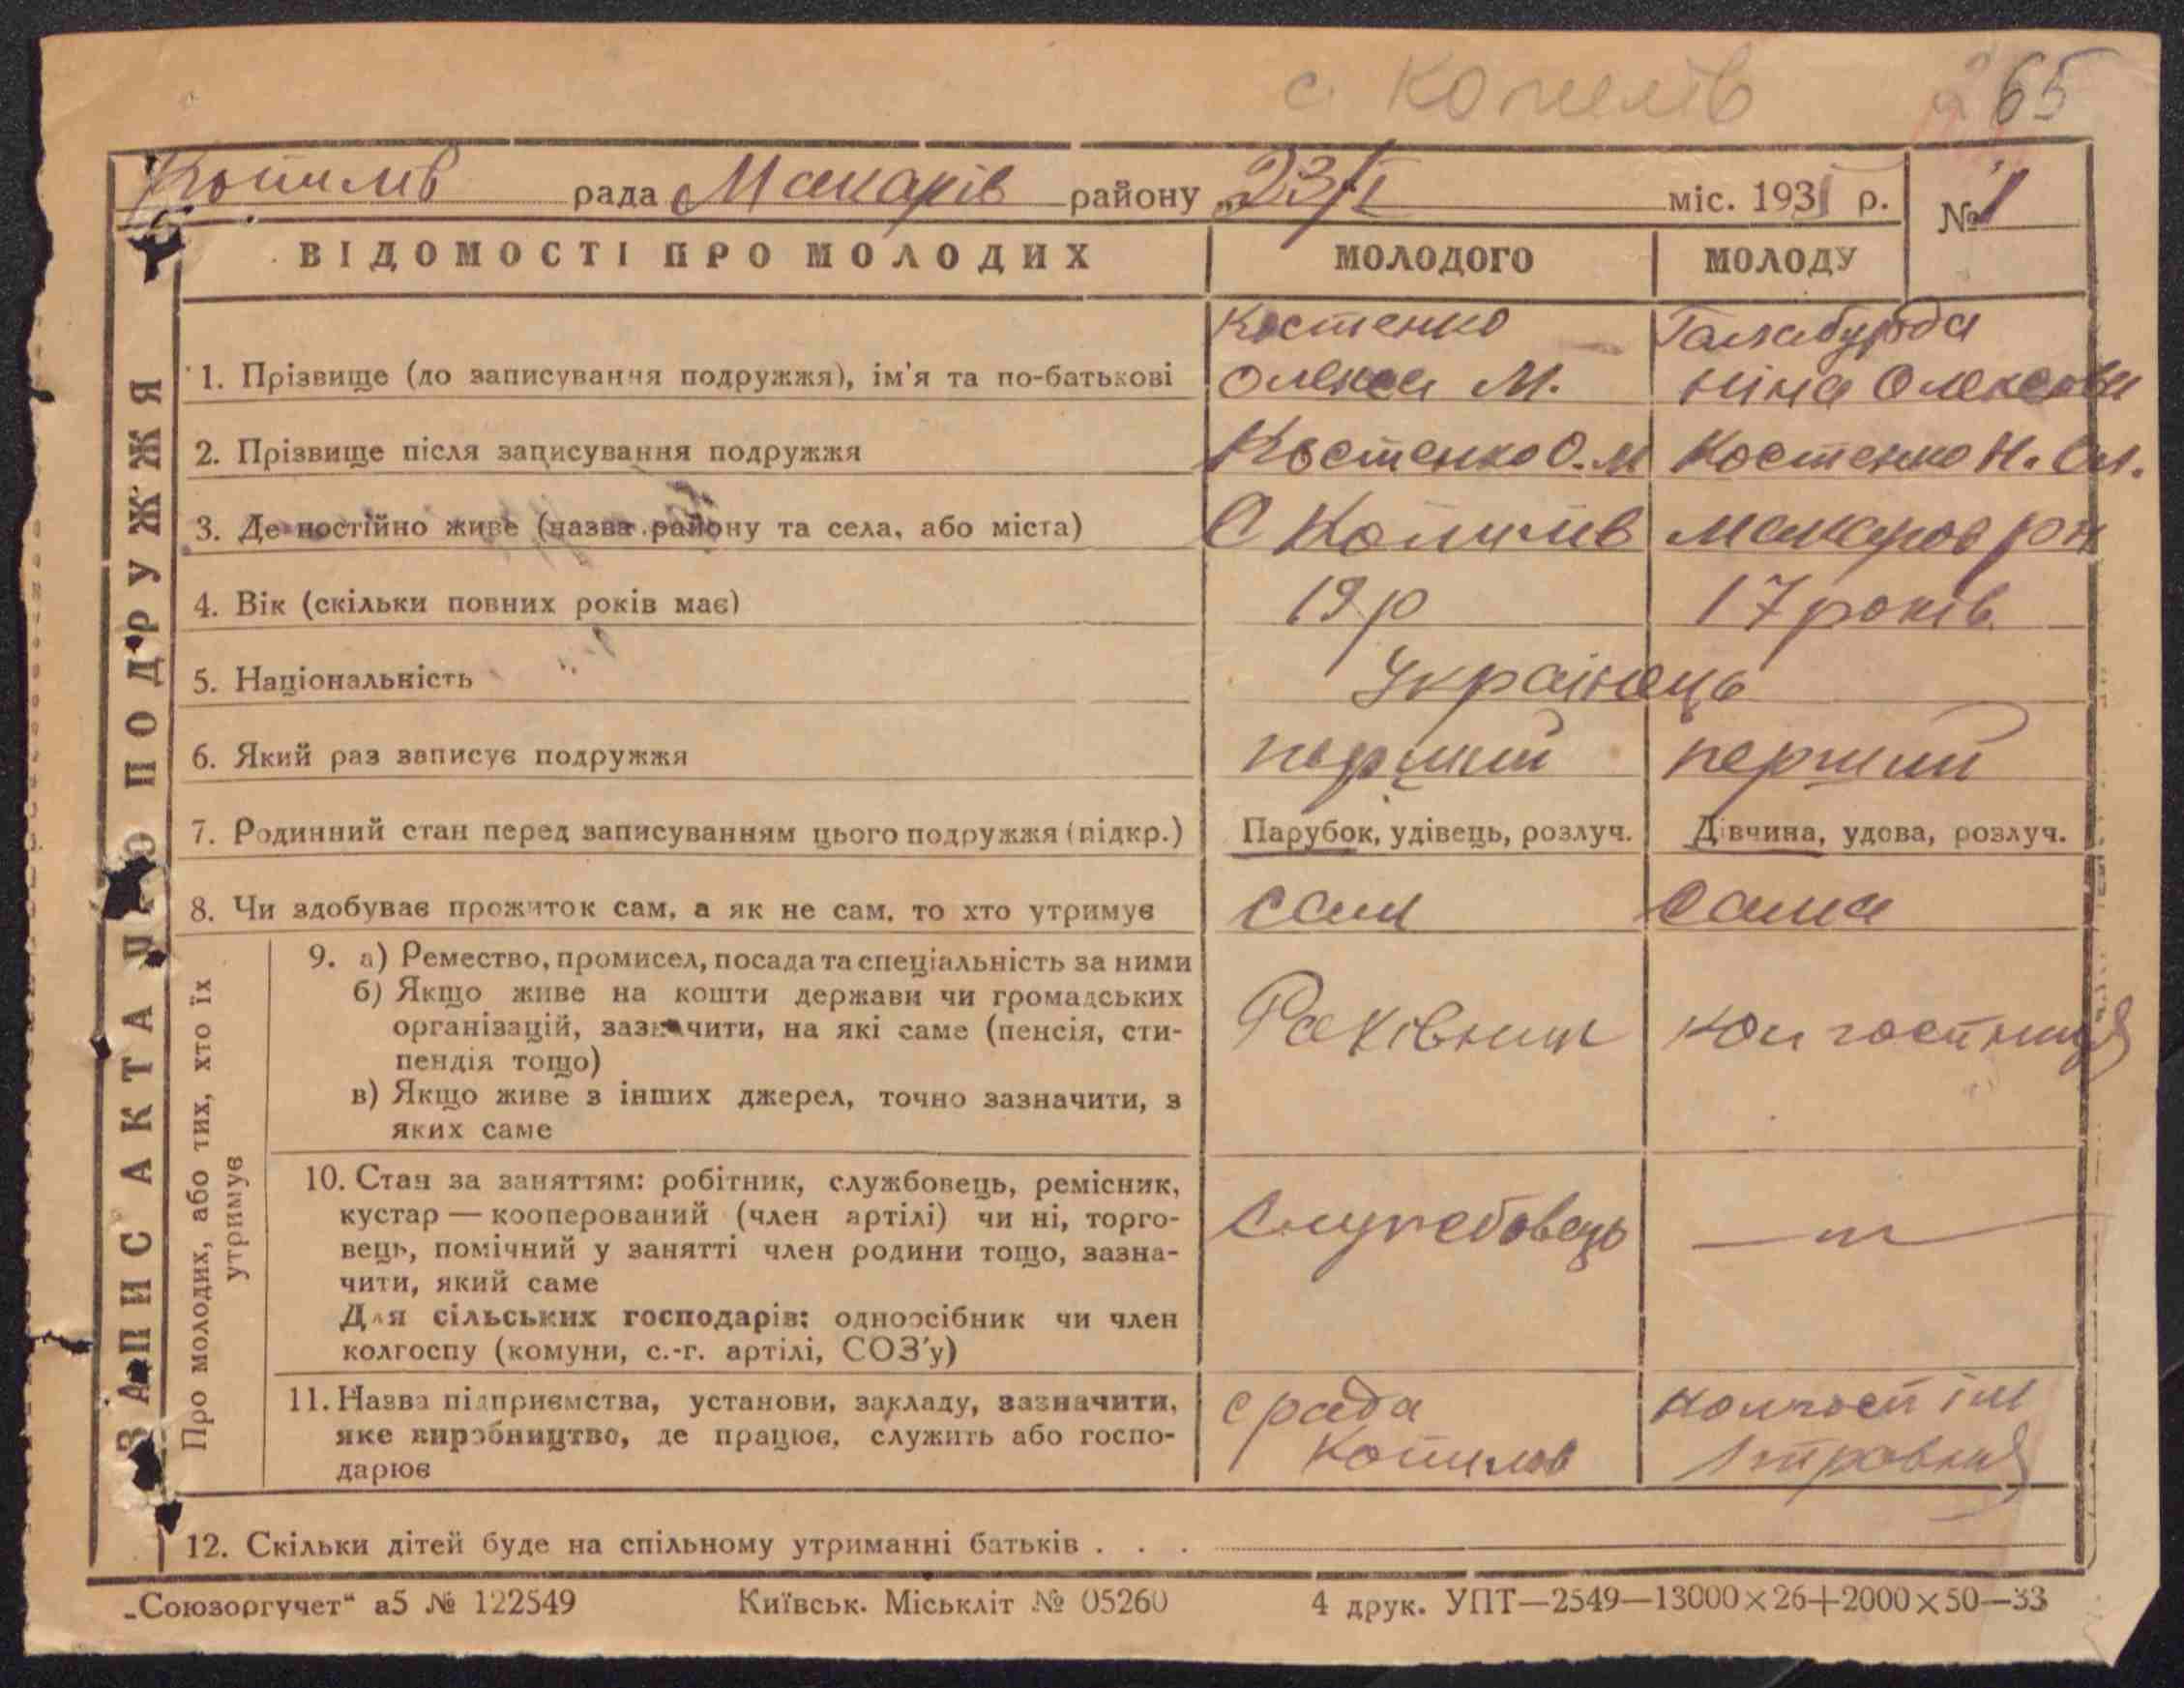 с. Копилів
65
Копилів рада Макарів району „23/I міс. 193 р. № 1
ВІДОМОСТІ ПРО МОЛОДИХ МОЛОДОГО МОЛОДУ
ЗАПИС АКТА ПРО ПОДРУЖЖЯ
Костенко Галабурда
1. Прізвище (до записування подружжя), ім'я та по-батькові Олекса М. Ніна Олексіївн
2. Прізвище після записування подружжя Костенко О. М Костенко Н. Ол.
3. Де постійно живе (назва району та села, або міста) С Копилів Макаров рн
4. Вік (скільки повних років має) 19 р 17 років
5. Національність Українець
6. Який раз записує подружжя перший перший
7. Родинний стан перед записуванням цього подружжя (підкр.) Парубок, удівець, розлуч. Дівчина, удова, розлуч.
8. Чи здобуває прожиток сам, а як не сам, то хто утримує сам сама
Про молодих, або тих, хто їх
утримує
9. а) Ремество, промисел, посада та спеціальність за ними
б) Якщо живе на кошти держави чи громадських
організацій, зазначити, на які саме (пенсія, сти-
пендія тощо)
в) Якщо живе з інших джерел, точно зазначити, з
яких саме
Рахівник колгоспниця
10. Стан за заняттям: робітник, службовець, ремісник,
кустар — кооперований (член артілі) чи ні, торго-
вець, помічний у занятті член родини тощо, зазна-
чити, який саме
Для сільських господарів: одноосібник чи член
колгоспу (комуни, с.-г. артілі, СОЗ'у)
Службовець — „ —
11. Назва підприємства, установи, закладу, зазначити,
яке виробництво, де працює, служить або госпо-
дарює
с рада колгосп ім
Копилов 1 травня
12. Скільки дітей буде на спільному утриманні батьків . . .
„Союзоргучет" а5 № 122549 Київськ. Міськліт № 05260 4 друк. УПТ—2549—13000×26+2000×50—33